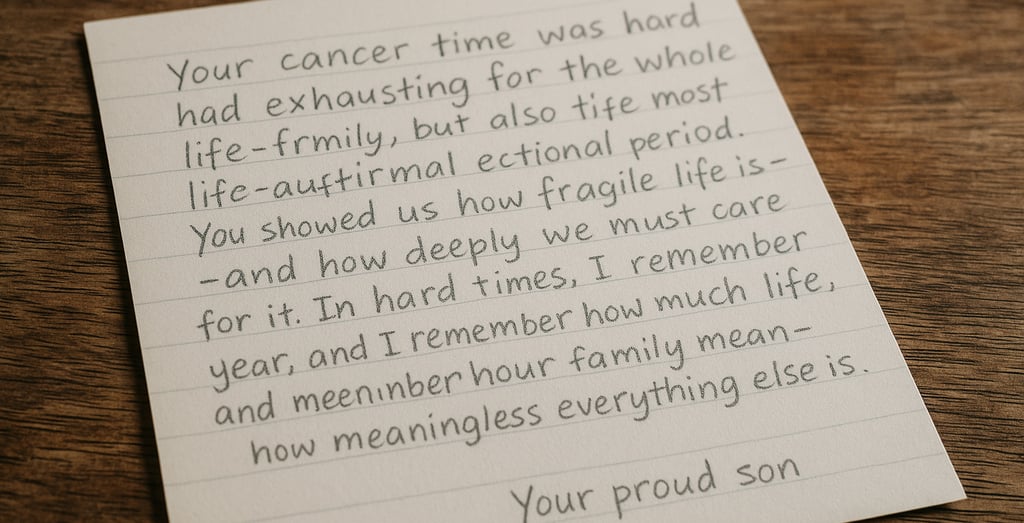 Your cancer time was hard
had exhausting for the whole
life-frmily, but also tife most
life-auftirmal ectional period.
You showed us how fragile life is-
-and how deeply we must care
for it. In hard times, I remember
year, and I remember how much life,
and meeninber hour family mean-
how meaningless everything else is.
Your proud son